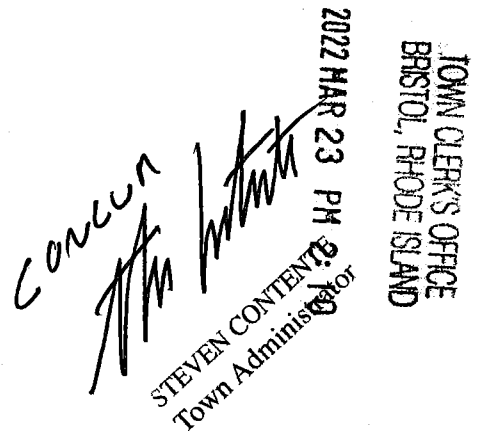 TOWN CLERK'S OFFICE
BRISTOL, RHODE ISLAND
2022 MAR 23 PM
CONCUR
STEVEN CONTENTE
Town Administrator